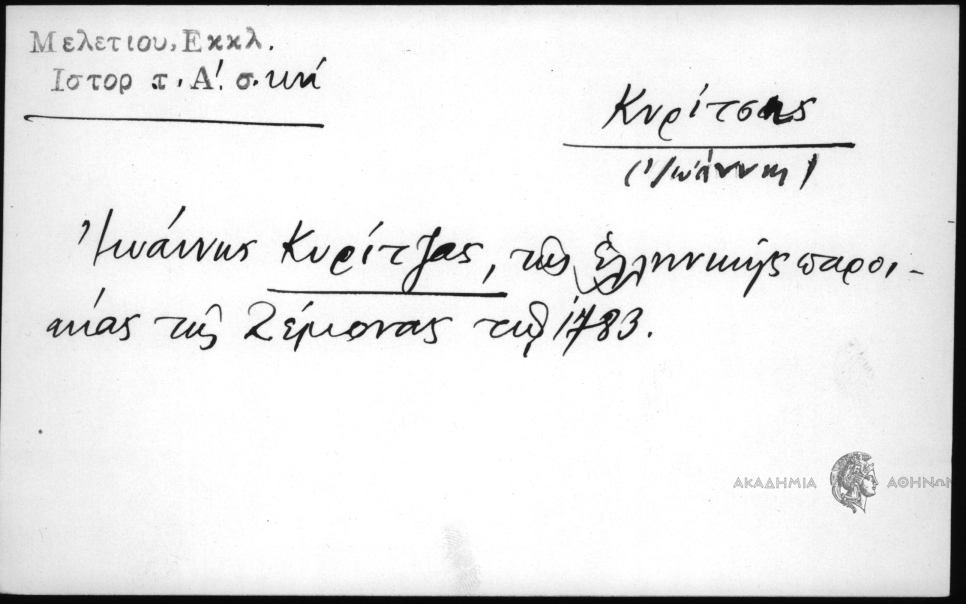 Μελετιου, Εκκλ.
Ιστορ τ. Α! σ. κνή
Κυρίτσης
(Ἰωάννης)
Ἰωάννης Κυρίτζας, τῆς ἑλληνικῆς παροι-
κίας τῆς Ζέμονας τῷ 1783.
ΑΚΑΔΗΜΙΑ ΑΘΗΝΩΝ